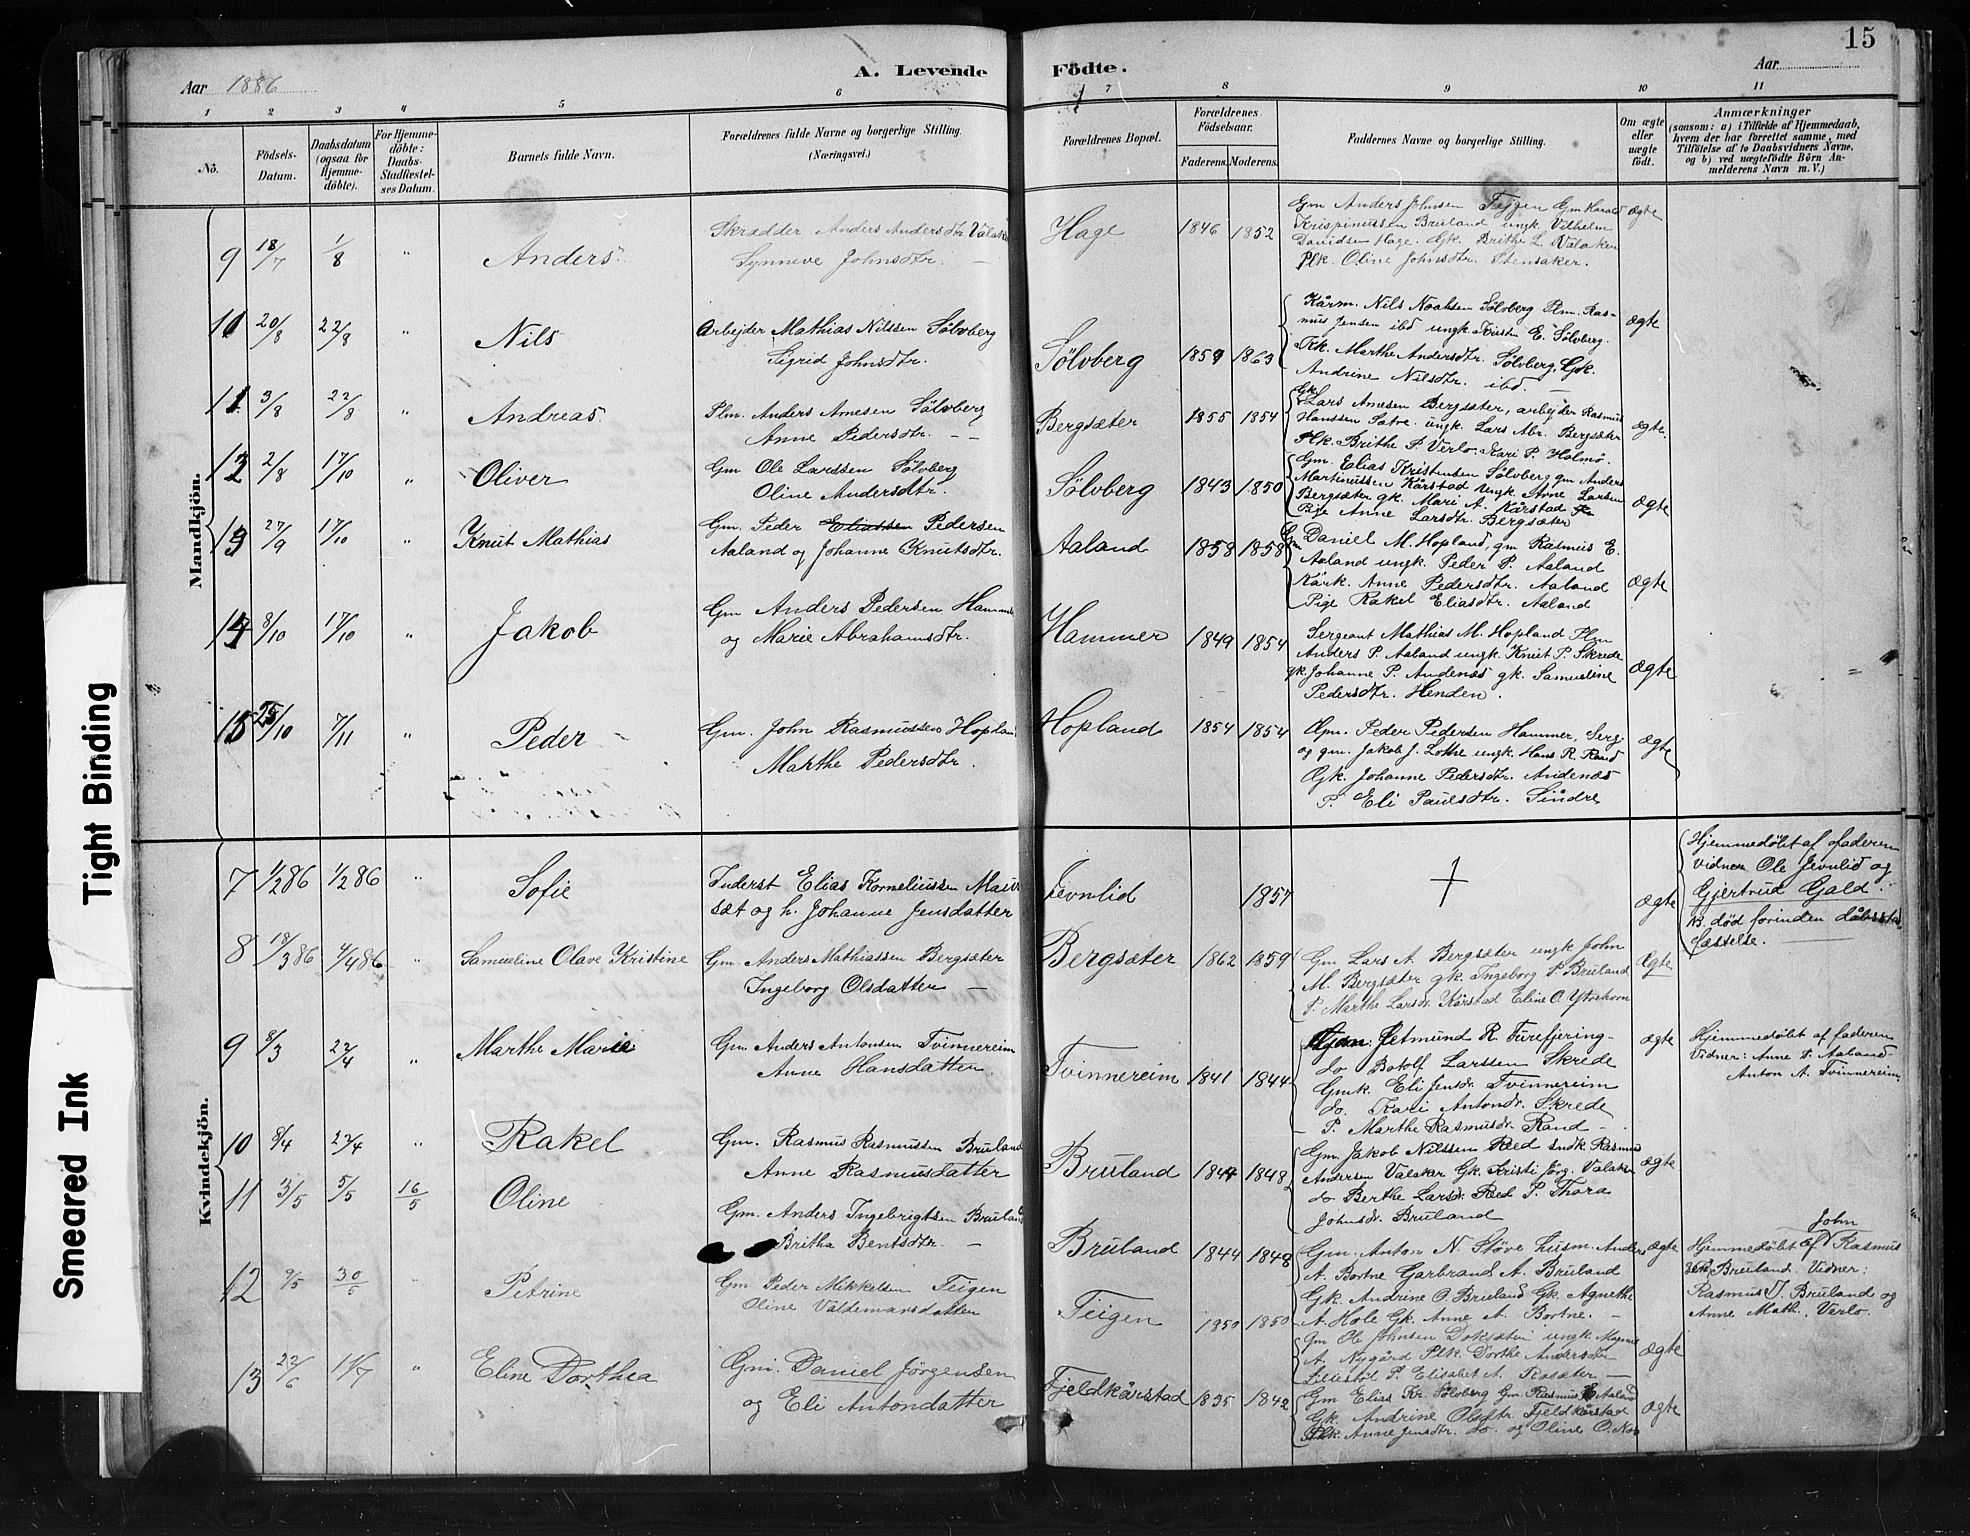 15
Aar 1886
A. Levende Födte.
Aar
1 2 3 4 5 6 7 8 9 10 11
No.
Födsels-Datum.
Daabsdatum (ogsaa for Hjemme-döbte).
For Hjemme-döbte: Daabs-Stadfæstel-ses Datum.
Barnets fulde Navn.
Forældrenes fulde Navne og borgerlige Stilling. (Næringsvei.)
Forældrenes Bopæl.
Forældrenes Födselsaar.
Faderens. Moderens.
Faddernes Navne og borgerlige Stilling.
Om ægte eller uægte födt.
Anmærkninger
(saasom: a) i Tilfælde af Hjemmedaab,
hvem der har forrettet samme, med
Tilföielse af to Daabsvidners Navne.
og b) ved uægtefödte Börn An-
melderens Navn m. V.)
Mandkjön.
9 18/7 1/8 " Anders
Skrædder Anders Andersdtr Valaker
Synneve Johnsdtr. —
Hage 1846 1852
Gm Anders Johnsen Tejgen Gm Harald
Krispinussen Bruland ungk Vilhelm
Davidsen Hage. Gk. Brithe L. Valaker
Plk. Oline Johnsdtr. Stensaker.
ægte
10 20/8 22/8 " Nils
Arbejder Mathias Nilssen Sølvberg
Sigrid Johnsdtr.
Sølvberg 1859 1863
Kårm. Nils Noahsen Sølvberg Plm. Ras-
mus Jensen ibd ungk. Kristen E. Sølvberg.
Kk. Marthe Andersdtr. Sølvberg, Gk.
Andrine Nilsdtr. ibd.
ægte
11 3/8 22/8 " Andreas
Plm. Anders Arnesen Sølvberg
Anne Pedersdtr. — —
Bergsæter 1855 1854
Lars Arnesen Bergsæter, arbejder Rasmus
Hanssen Satre. ungk. Lars Abr. Bergsæter
Plk. Brithe P. Verlo. Kari P. Holmø.
ægte.
12 2/8 17/10 " Oliver
Gm Ole Larssen Sølvberg
Oline Andersdtr.
Sølvberg 1843 1850
Gm. Elias Kristensen Sølvberg gm Anders
Martinussen Kårstad ungk. Arne Larsen
Bergsæter gk. Mari A. Kårstad
Pige Anne Larsdtr. Bergsæter
ægte
13 27/9 17/10 " Knut Mathias
Gm. Peder Eliassen Pedersen
Aaland og Johanne Knutsdtr.
Aaland 1858 1858
Gm Daniel M. Hopland, gm Rasmus E.
Aaland ungk. Peder P. Aaland
Kårk. Anne Pedersdtr. Aaland
Pige Rakel Eliasdtr. Aaland
ægte
14 8/10 17/10 " Jakob
Gm Anders Pedersen Hammer
og Marie Abrahamsdtr.
Hammer 1849 1854
Sergeant Mathias M. Hopland Plm
Anders P. Aaland ungk. Knut P. Skrede
gk. Johanne P. Andenæs gk. Samueline
Pedersdtr. Henden.
ægte
15 25/10 7/11 " Peder
Gm. John Rasmussen Hopland
Marthe Pedersdtr.
Hopland 1854 1854
Gm. Peder Pedersen Hammer, Serg
og gm. Jakob J. Lothe ungk. Hans R. Rand
Gk. Johanne Pedersdtr. Andenæs
P. Eli Paulsdtr. Sindre
ægte
Kvindekjön.
7 1/2 86 1/2 86 " Sofie
Inderst Elias Korneliussen Maur-
sæt og h. Johanne Jensdatter
Jevnlid 1857
†
ægte
Hjemmedøbt af faderen
vidner Ole Jevnlid og
Gjertrud Gald.
NB. død forinden dåbsstad
fæstelse.
8 18/3 86 4/4 86 " Samueline Olave Kristine
Gm. Anders Mathiassen Bergsæter
Ingeborg Olsdatter —
Bergsæter 1862 1859
Gm Lars A. Bergsæter ungk John
M. Bergsæter gk. Ingeborg P. Bruland
P. Marthe Larsdr. Kårstad Eline O. Ytrehorn
Ægte
9 8/3 22/4 " Marthe Marie
Gm Anders Antonsen Tvinnereim
Anne Hansdatter.
Tvinnereim 1841 1844
Gm. Jetmund R. Furefjering-
do Botolf Larssen Skrede
Gmk. Eli Jensdr. Tvinnereim
do. Kari Antonsdr. Skrede
P. Marthe Rasmusdr. Rand
ægte
Hjemmedøbt af faderen
Vidner: Anne P. Aaland
Anton A. Tvinnereim.
10 8/4 22/4 " Rakel
Gm. Rasmus Rasmussen Bruland
Anne Rasmusdatter
Bruland 1844 1848
Gm. Jakob Nilssen Reed Rasmus
Andersen Valaker Gk. Kristi Jørg. Valaker
do Berthe Larsdr. Reed P. Thora
Johnsdr. Bruland
ægte
11 3/5 5/5 16/5 Oline
Gm. Anders Ingebrigtsen Bruland
Britha Bentsdtr. —
Bruland 1844 1848
Gm. Anton N. Støve husm. Anders
A. Bortne Garbrand A. Bruland
Gk. Andrine O. Bruland Gk. Agnethe
A. Hole Gk. Anne A. Bortne.
ægte
John
Hjemmedøbt af Rasmus
Bruland. Vidner:
Rasmus J. Bruland og
Anne Math. Verlo.
12 9/5 30/5 Petrine
Gm Peder Mikkelsen Teigen
Oline Valdemarsdatter
Teigen 1850 1850
Gm Ole Johnsen Doksæter ungk. Magnus
A. Nygård Plk. Dorthe Andersdtr
Lillestøl P. Elisabet A.
ægte
13 22/6 11/7 " Eline Dorthea
Gm. Daniel Jörgensen
og Eli Antondatter
Fjeldkårstad 1835 1842
Gm Elias Kr. Sølvberg Gm. Rasmus E Aaland
Gk. Andrine Olsdtr. Fjeldkårstad
Plk. Anne Jensdtr. do. og Oline O.
ægte
Tight Binding
Smeared Ink